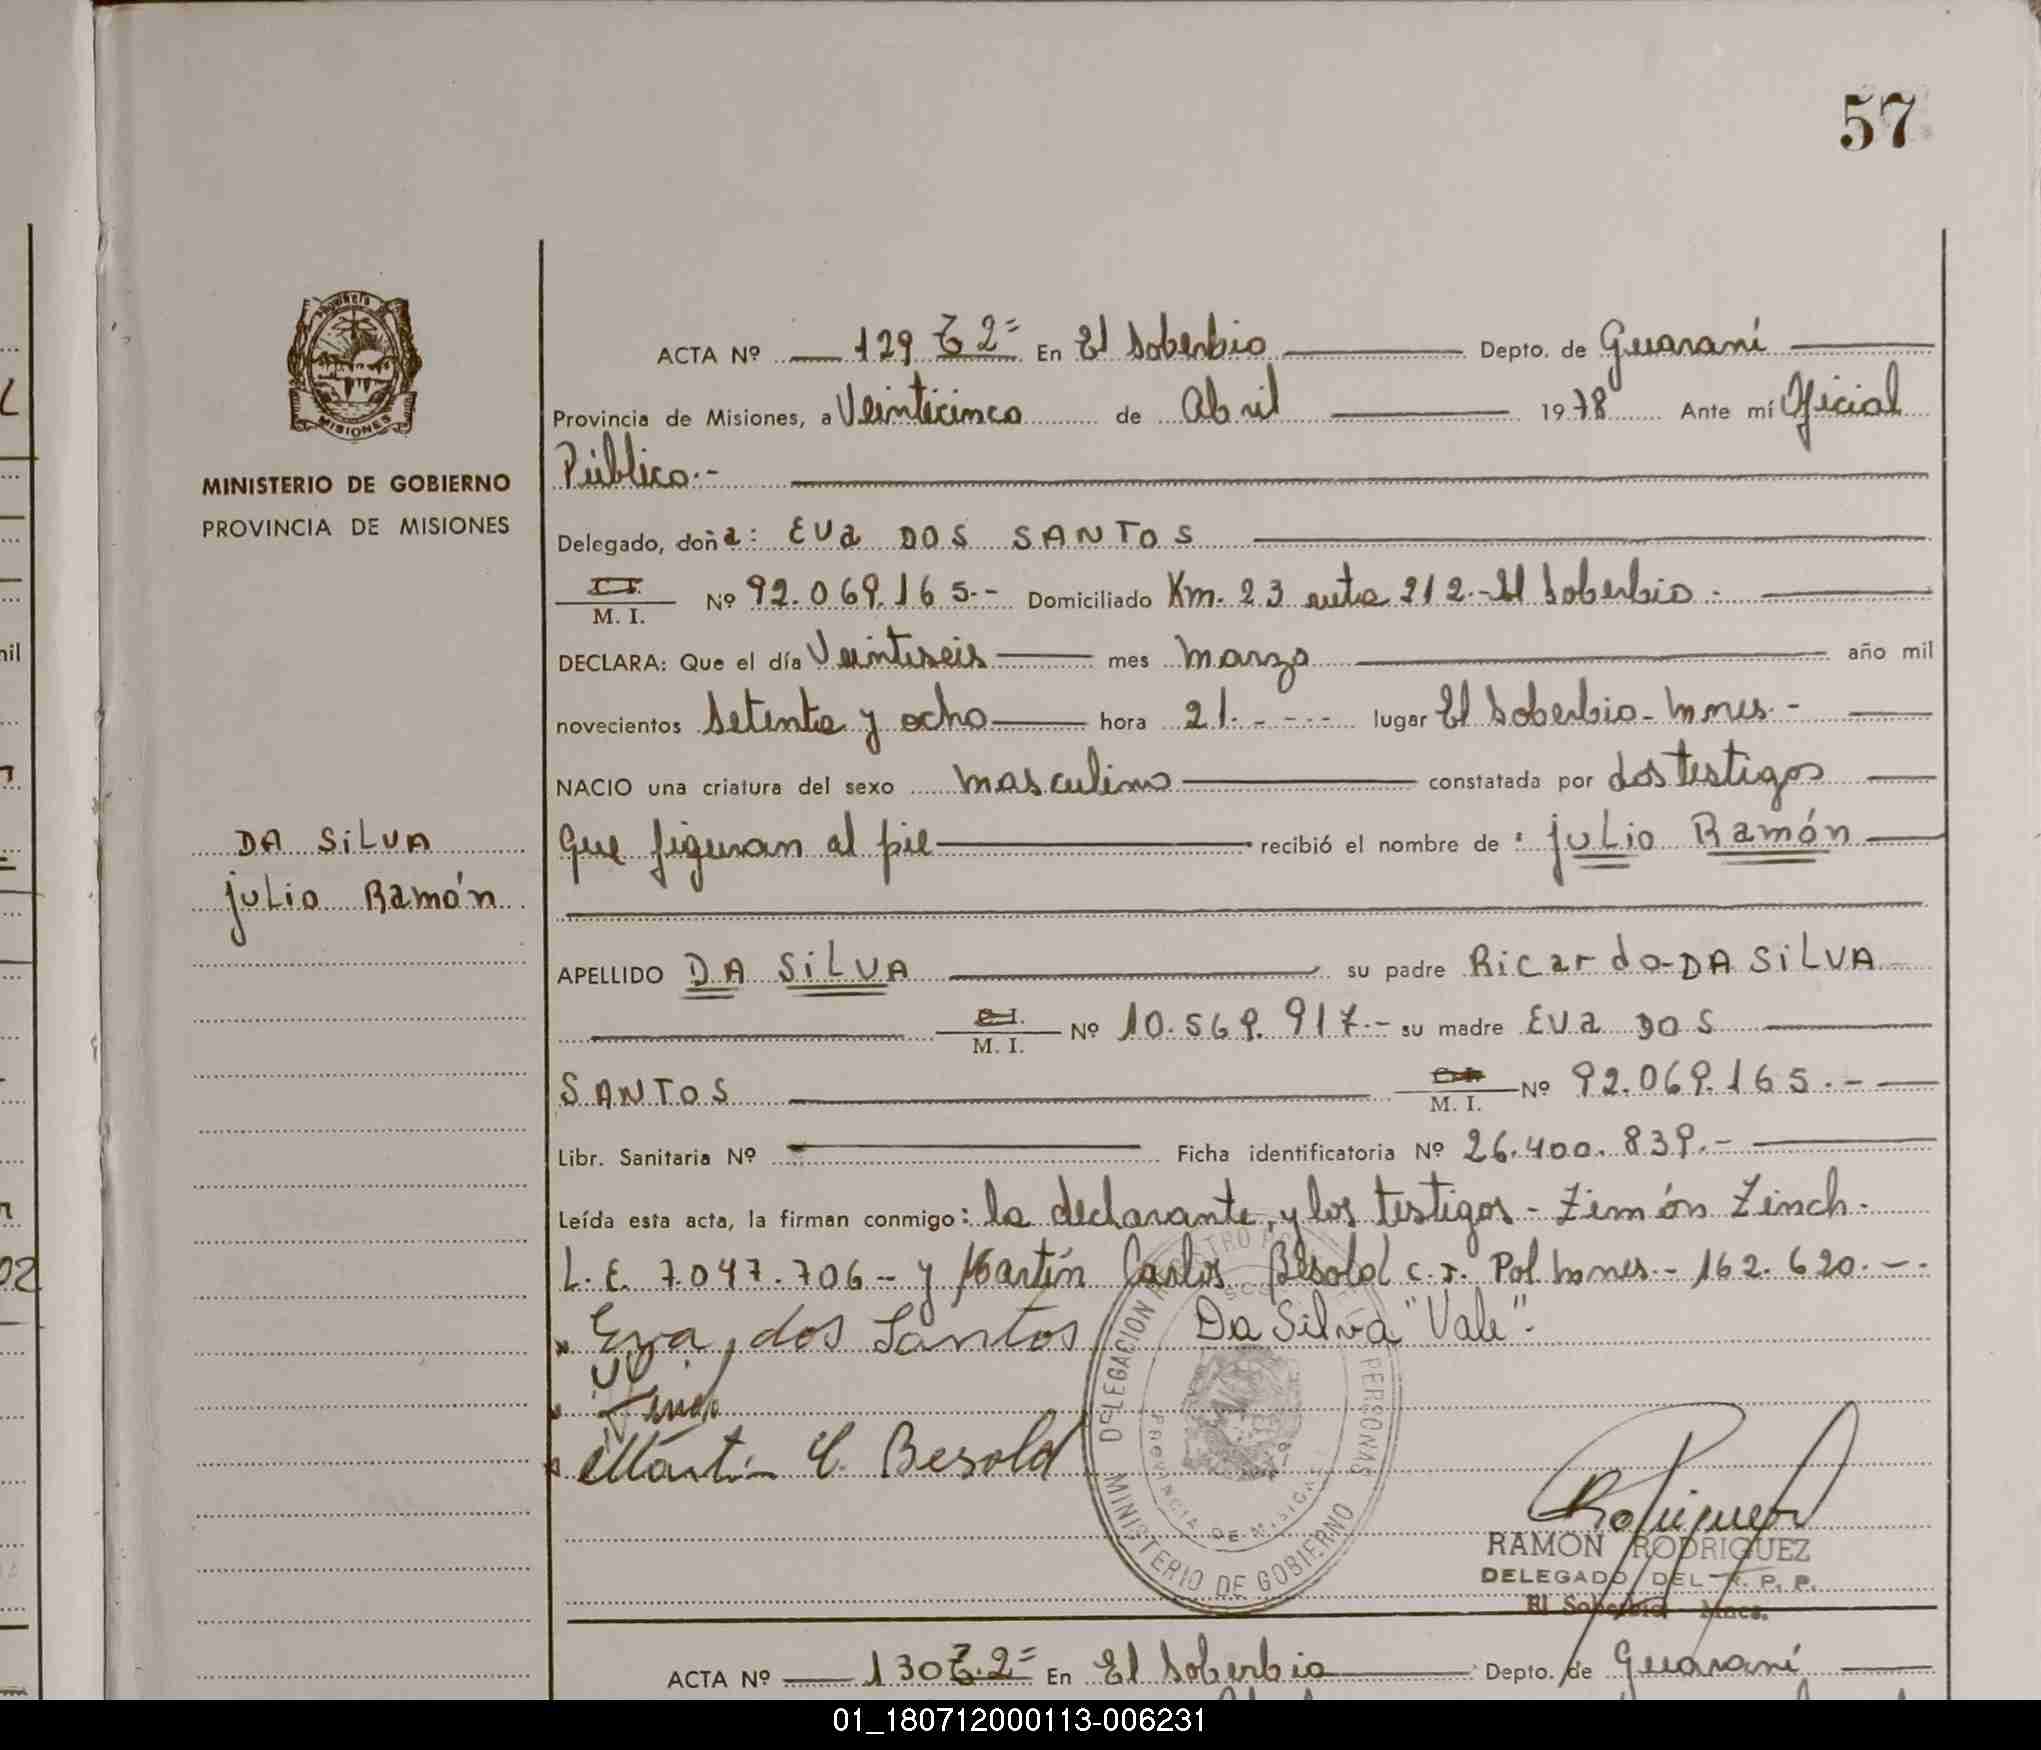 57
PROVINCIA DE
MISIONES
MINISTERIO DE GOBIERNO
PROVINCIA DE MISIONES
DA SILVA
Julio Ramón
ACTA Nº 129 T 2= En El Soberbio Depto. de Guaraní
Provincia de Misiones, a Veinticinco de Abril 1978 Ante mí Oficial
Público.-
Delegado, doña: Eva DOS SANTOS
C. I. M. I. Nº 92.069.165.- Domiciliado Km. 23 ruta 212.- El Soberbio.-
DECLARA: Que el día Veintiseis mes Marzo año mil
novecientos setenta y ocho hora 21.---- lugar El Soberbio - Mnes.-
NACIO una criatura del sexo masculino constatada por dos testigos
que figuran al pie recibió el nombre de: Julio Ramón
APELLIDO DA SILVA su padre Ricardo-DA SILVA
C. I. M. I. Nº 10.569.917.- su madre Eva DOS
SANTOS C. I. M. I. Nº 92.069.165.-
Libr. Sanitaria Nº Ficha identificatoria Nº 26.400.839.-
Leída esta acta, la firman conmigo: la declarante, y los testigos - Zimón Zinch.
L.E. 7.047.706 - y Martín Carlos Besold C.I. Pol. Mnes.- 162.620.-.
Eva dos Santos Da Silva "Vale".
Martin C. Besold
DELEGACION REGISTRO DE LAS PERSONAS
PROVINCIA DE MISIONES
MINISTERIO DE GOBIERNO
RAMON RODRIGUEZ
DELEGADO DEL R. P. P.
El Soberbio Mnes.
ACTA Nº 130 T. 2= En El Soberbio Depto. de Guaraní
01_180712000113-006231